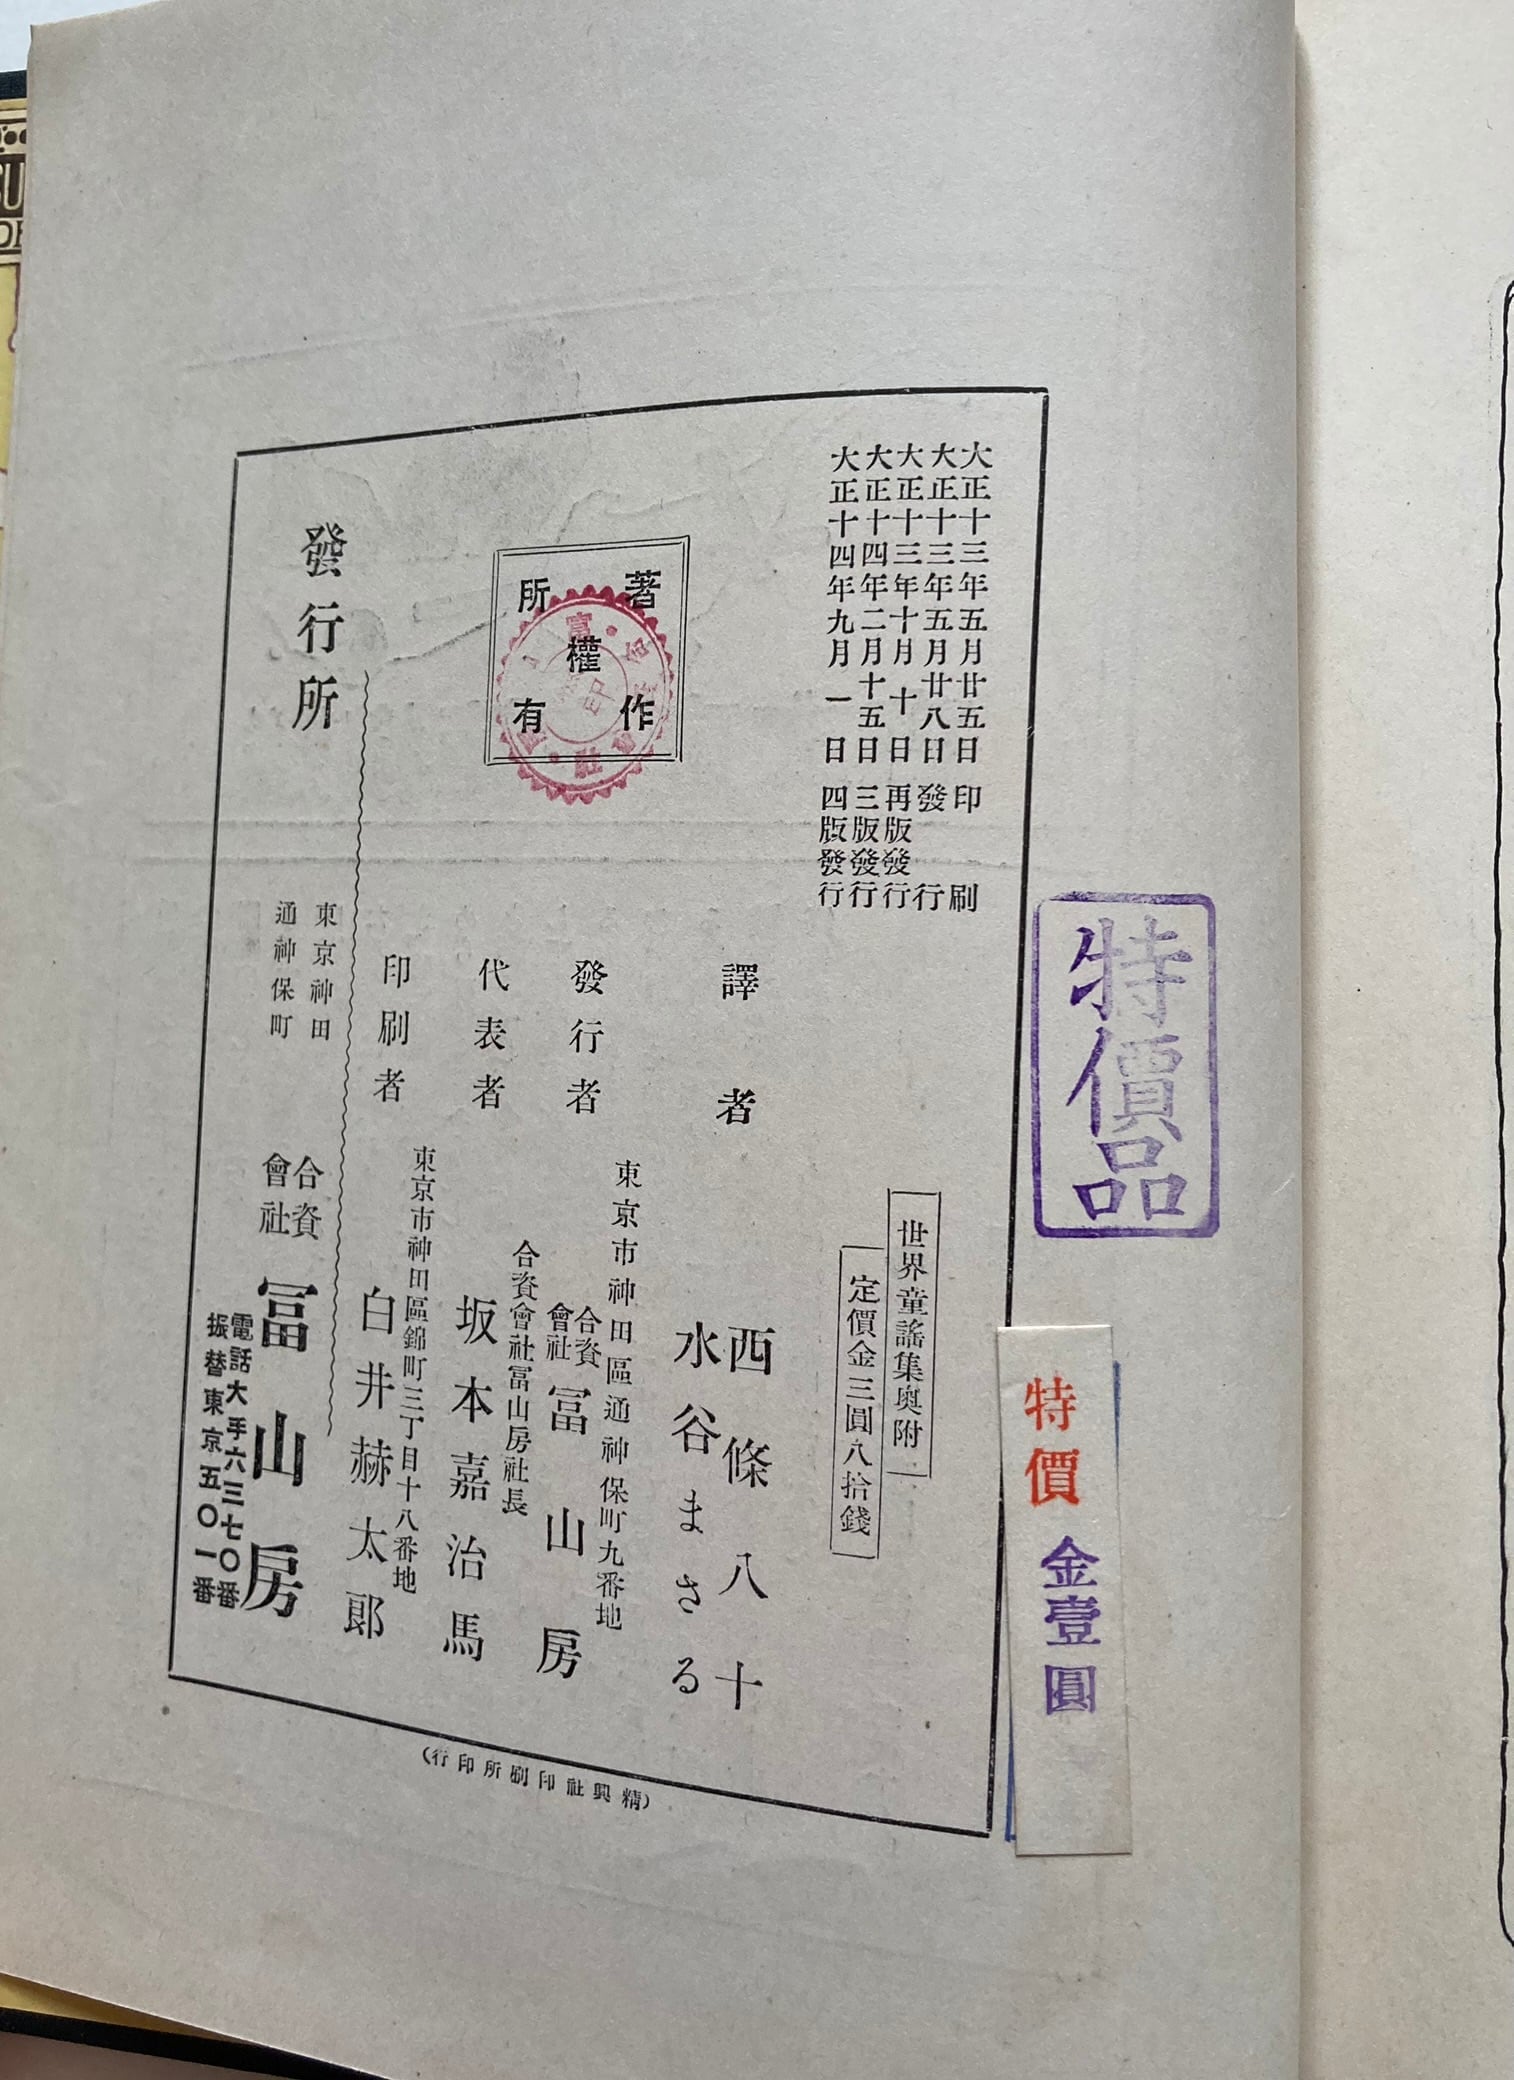 大正十三年五月廿五日印刷
大正十三年五月廿八日發行
大正十三年十月十日再版發行
大正十四年二月十五日三版發行
大正十四年九月一日四版發行
特價品
特價 金壹圓
世界童謠集奧附
定價金三圓八拾錢
著作權所有
譯者
西條八十
水谷まさる
發行者
東京市神田區通神保町九番地
合資會社 冨山房
代表者
合資會社冨山房社長
坂本嘉治馬
印刷者
東京市神田區錦町三丁目十八番地
白井赫太郎
發行所
東京神田
通神保町
合資會社 冨山房
電話大手六三七〇番
振替東京五〇一番
(精興社印刷所印行)